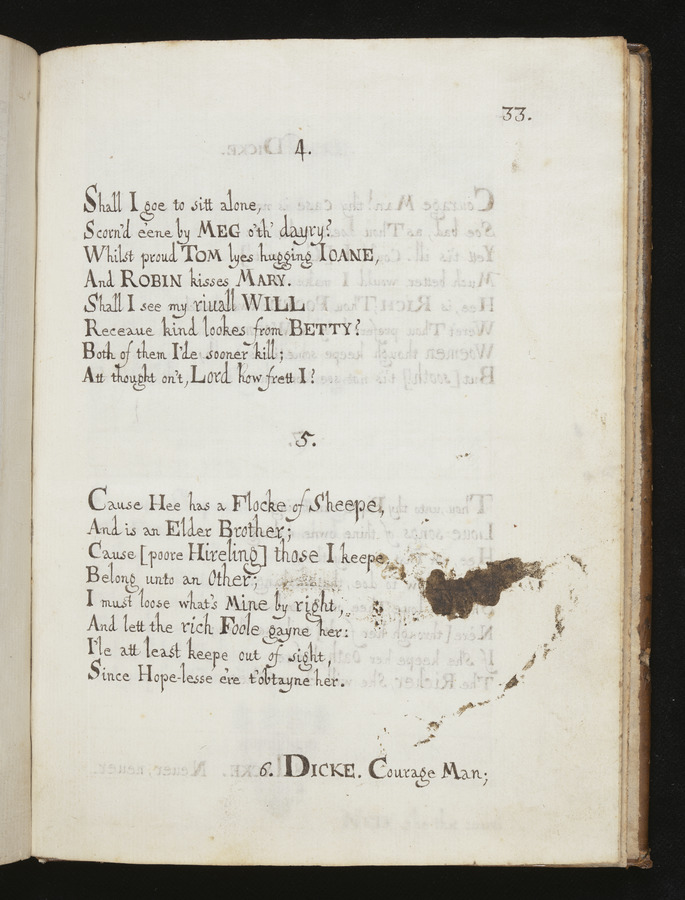 33.
4.
Shall I goe to sitt alone,
Scorn'd e'ene by MEG o'th' dayry?
Whilst proud TOM lyes hugging IOANE,
And ROBIN kisses MARY.
Shall I see my riuall WILL
Receaue kind lookes from BETTY?
Both of them I'de sooner kill;
Att thought on't, Lord how frett I!
5.
Cause Hee has a Flocke of Sheepe,
And is an Elder Brother;
Cause [poore Hireling] those I keepe
Belong unto an Other;
I must loose what's Mine by right,
And lett the rich Foole gayne her:
I'le att least keepe out of sight,
Since Hope-lesse e're t'obtayne her.
6. DICKE. Courage Man;